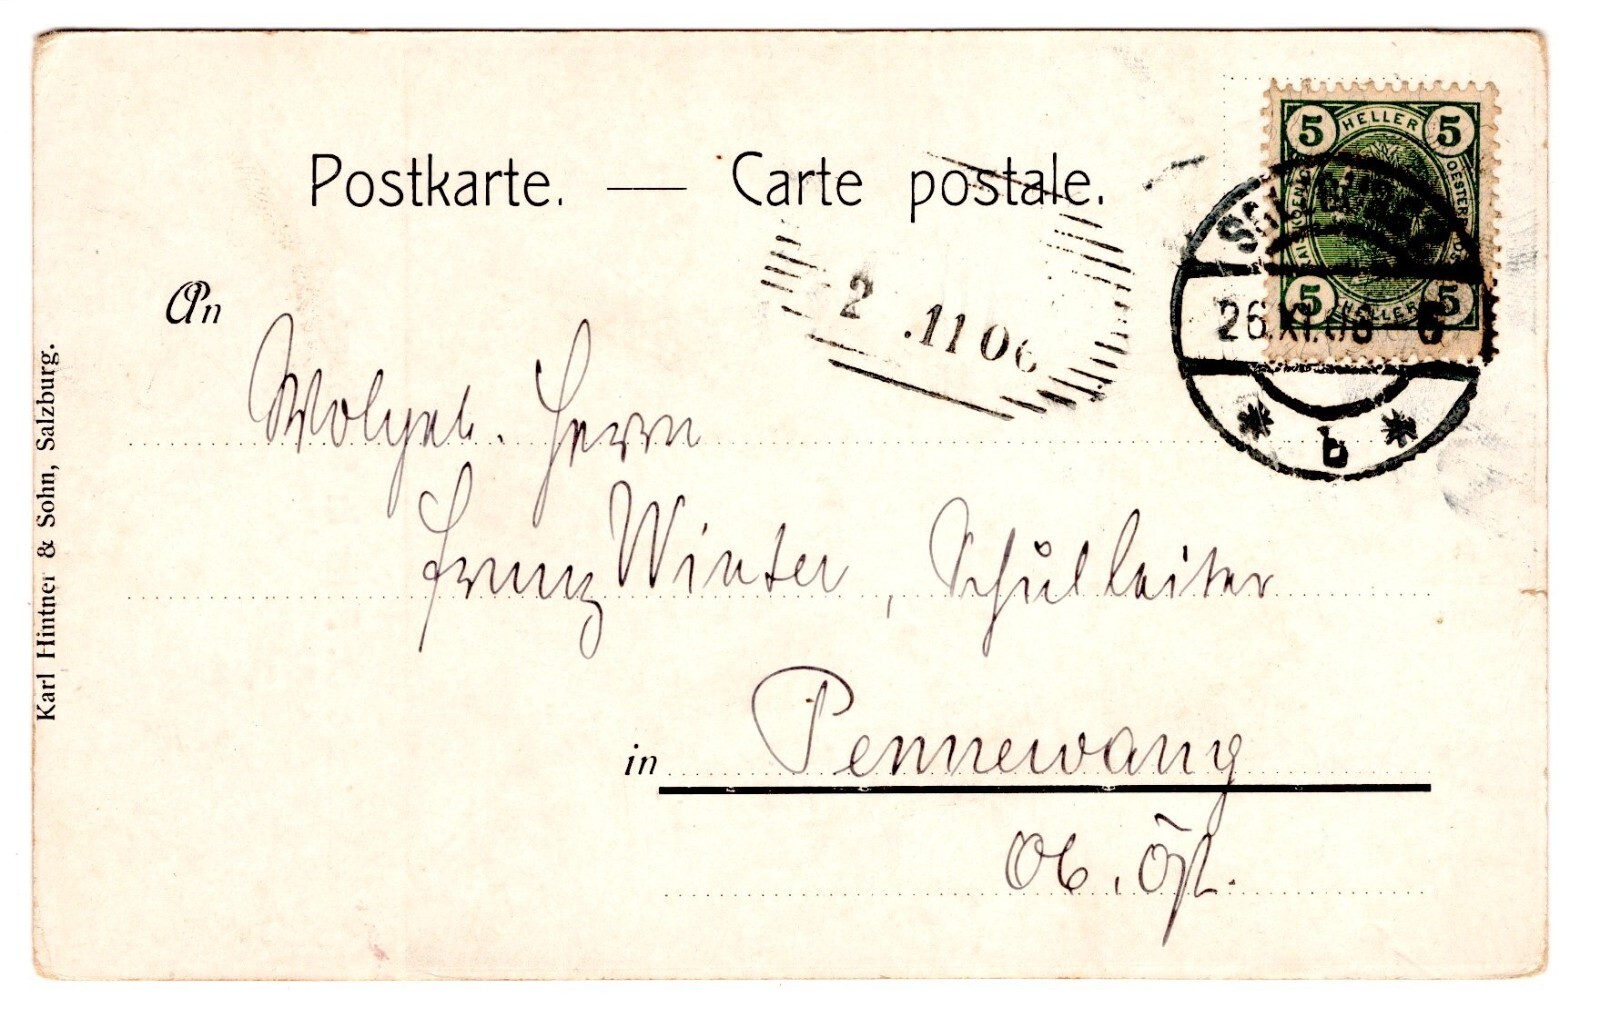 Postkarte. — Carte postale.
5 HELLER 5
5 HELLER 5
26.XI.06 6
b
2 .11 06
An
Wolgeb. Herrn
Franz Winter, Schulleiter
in Pennewang
Ob. Öst.
Karl Hintner & Sohn, Salzburg.